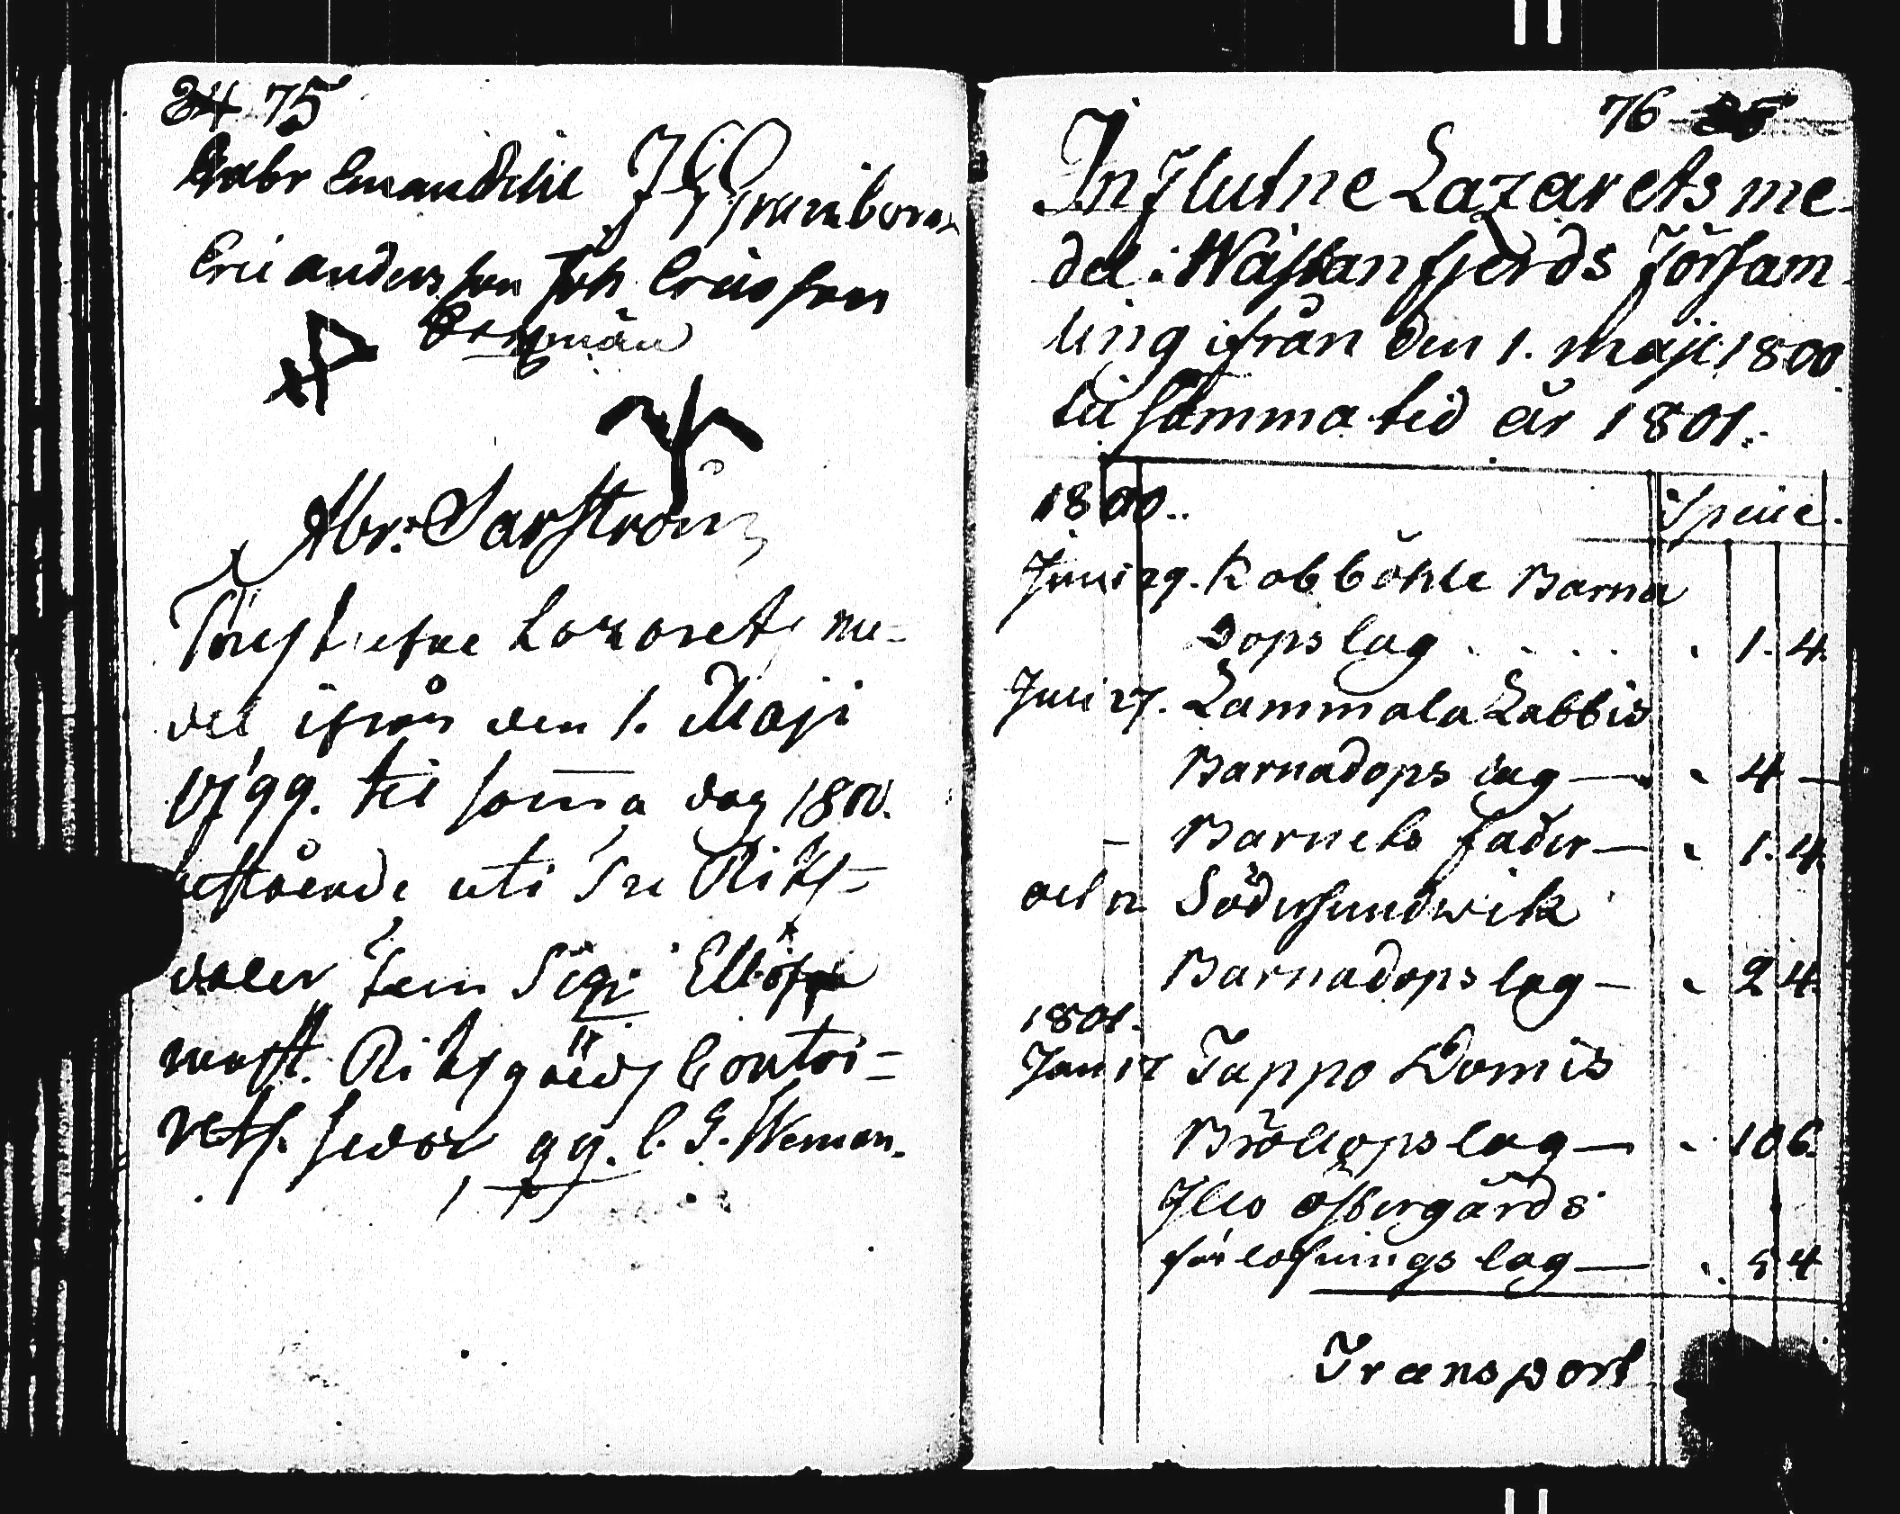 34 75
Gabr Emanuelse J G Granibora
Eric andersson Joh Ericsson
Bergman
Abr: Sarström
Förestående Lazarets me-
del ifrån den 1. Maji
1799. til somma dag 1800.
bestående uti Sre Riks-
daler fem
Riksgälds Contoi-
rets sedlar gg. C. G. Weman.
76 35
Influtne Lazarets me-
del i Wästanfjerds Församl
ling ifrån den 1. maji 1800
til samma tid år 1801.
1800.. Specie.
Juni 29. Kobböhle Barna
Dopslag . . . . . 1. 4.
Juli 27. Lammala Labbis
Barnadops lag — 4 —
— Barnets fader — 1. 4.
oct 12 Södersundwik
Barnadopslag — 2 4.
1801.
Jan 17 Tappo Domis
Bröllopslag — 10 6.
Illo östergårds
förlofnings lag — 5 4
Transport